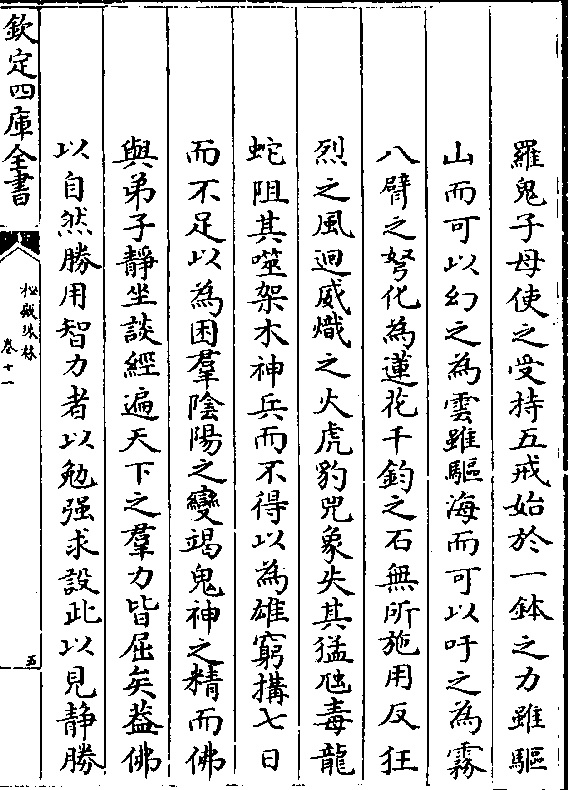 羅鬼子母使之受持五戒始於一鉢之力雖驅
山而可以幻之為雲雖驅海而可以吁之為霧
八臂之弩化為蓮花千鈞之石無所施用反狂
烈之風迴威熾之火虎豹兕象失其猛虺毒龍
蛇阻其噬架木神兵而不得以為雄窮搆七日
而不足以為困羣陰陽之變竭鬼神之精而佛
與弟子靜坐談經遍天下之羣力皆屈矣葢佛
以自然勝用智力者以勉强求設此以見静勝
欽定四庫全書
珠林
卷十一
五